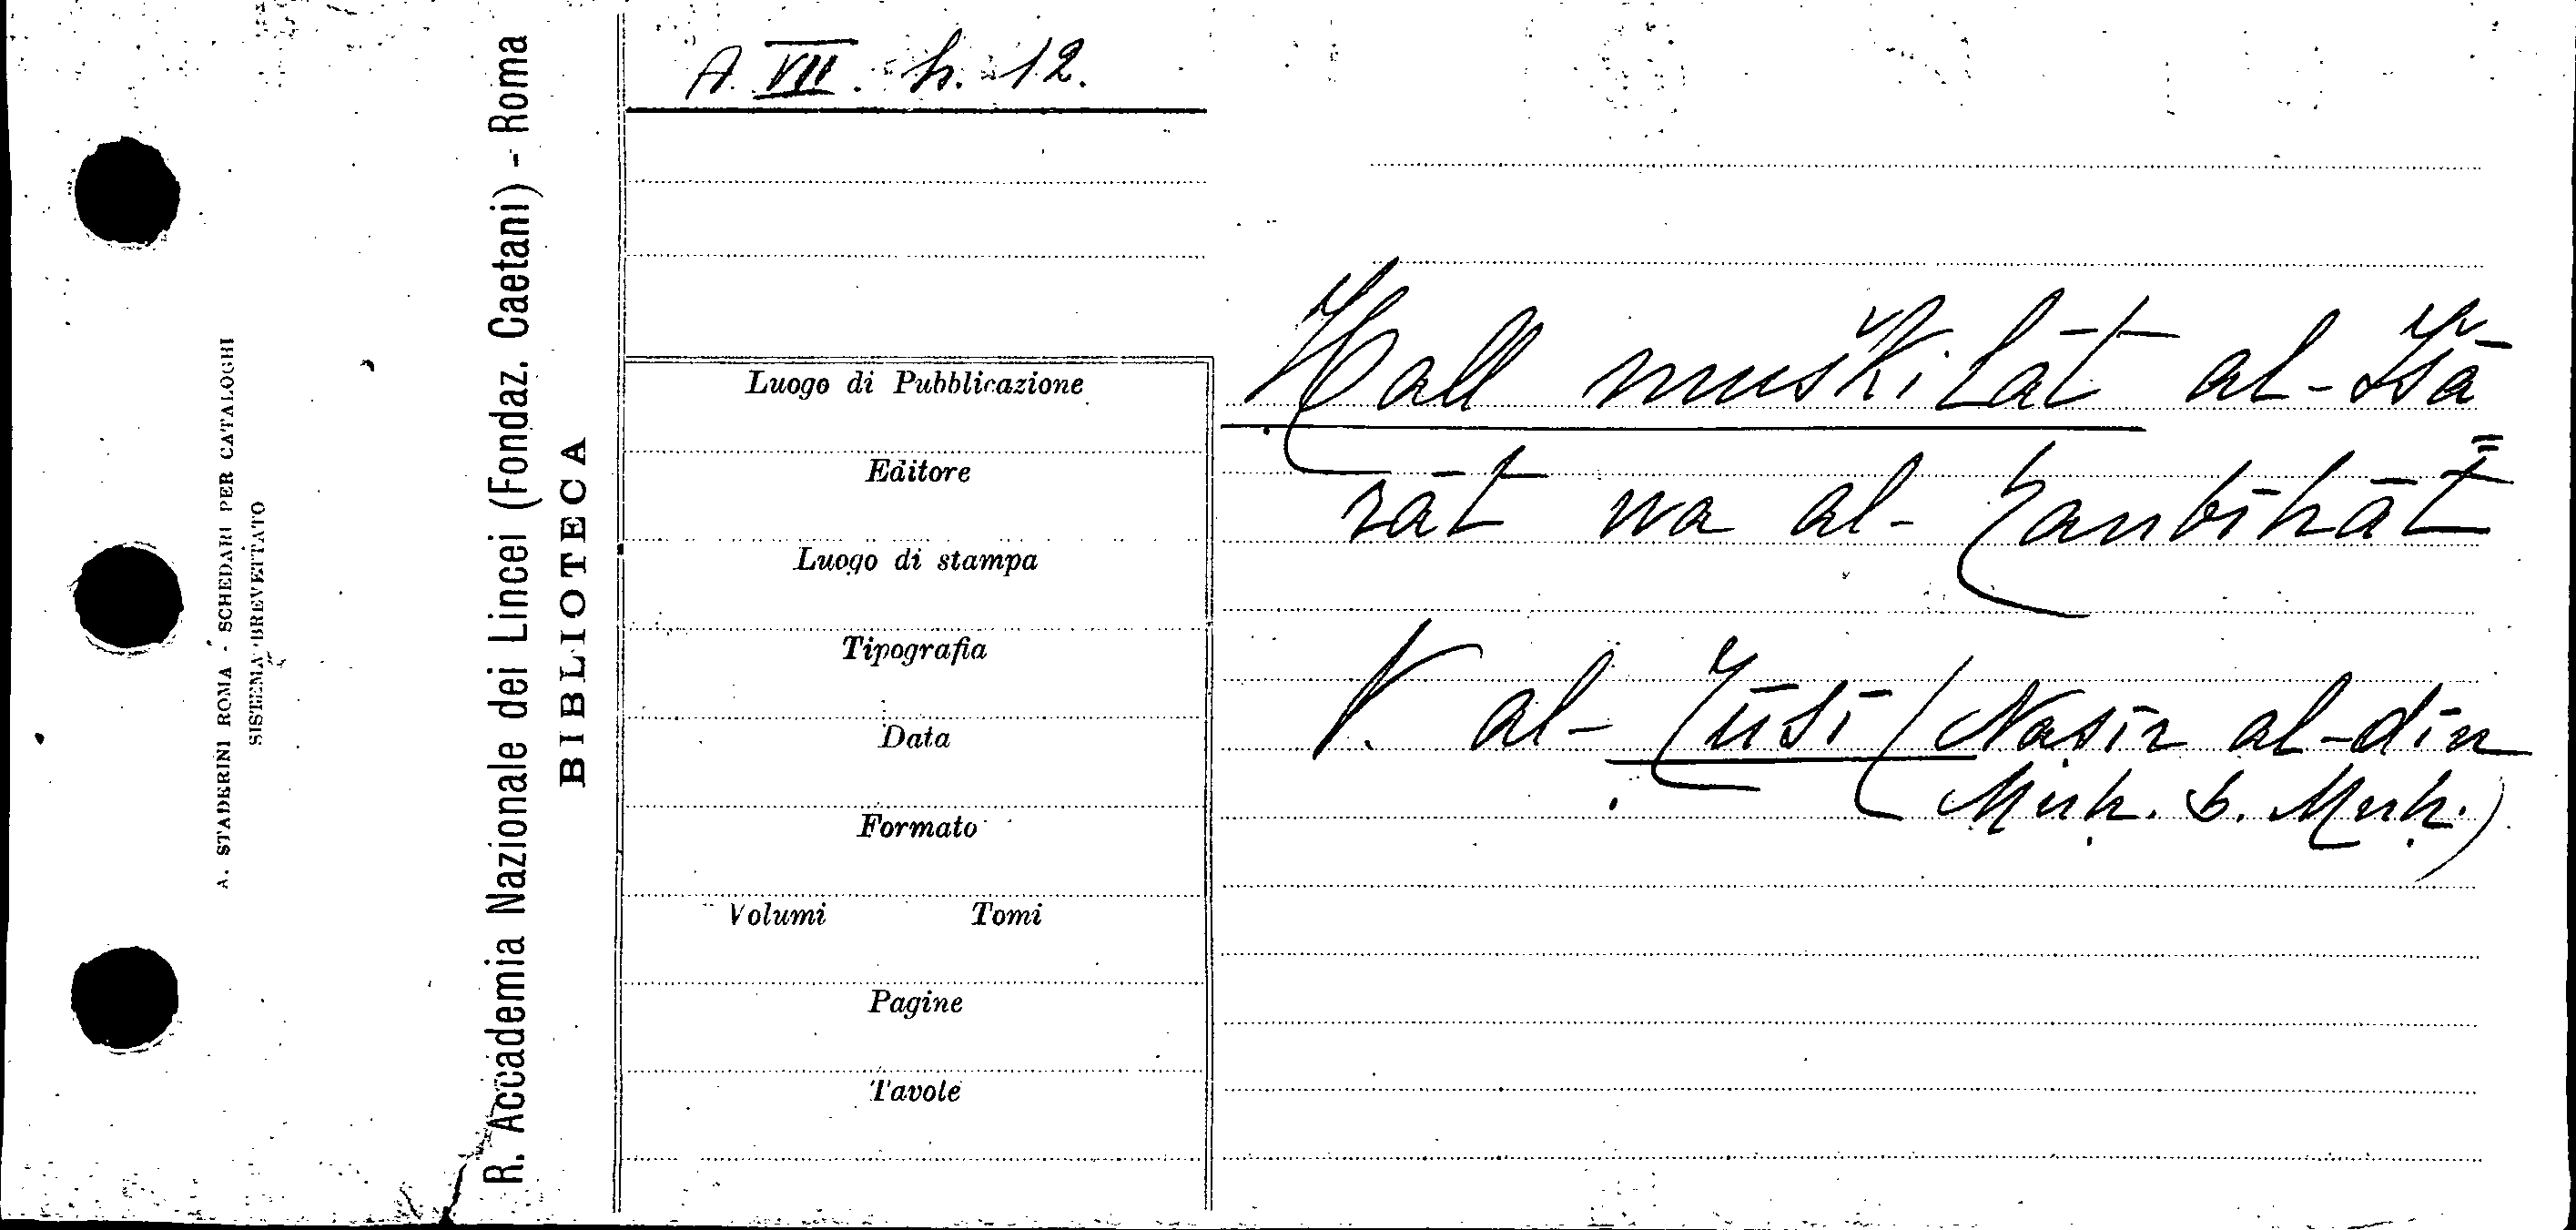 A. VII. h. 12.
A. STADERINI ROMA - SCHEDARI PER CATALOGHI
SISTEMA BREVETTATO
R. Accademia Nazionale dei Lincei (Fondaz. Caetani) - Roma
BIBLIOTECA
Luogo di Pubblicazione
Editore
Luogo di stampa
Tipografia
Data
Formato
Volumi Tomi
Pagine
Tavole
Ḥall muškilāt al-Išā
rāt wa al-tanbīhāt
V. al-Ṭūsī (Naṣīr al-dīn
Muḥ. b. Muḥ.)